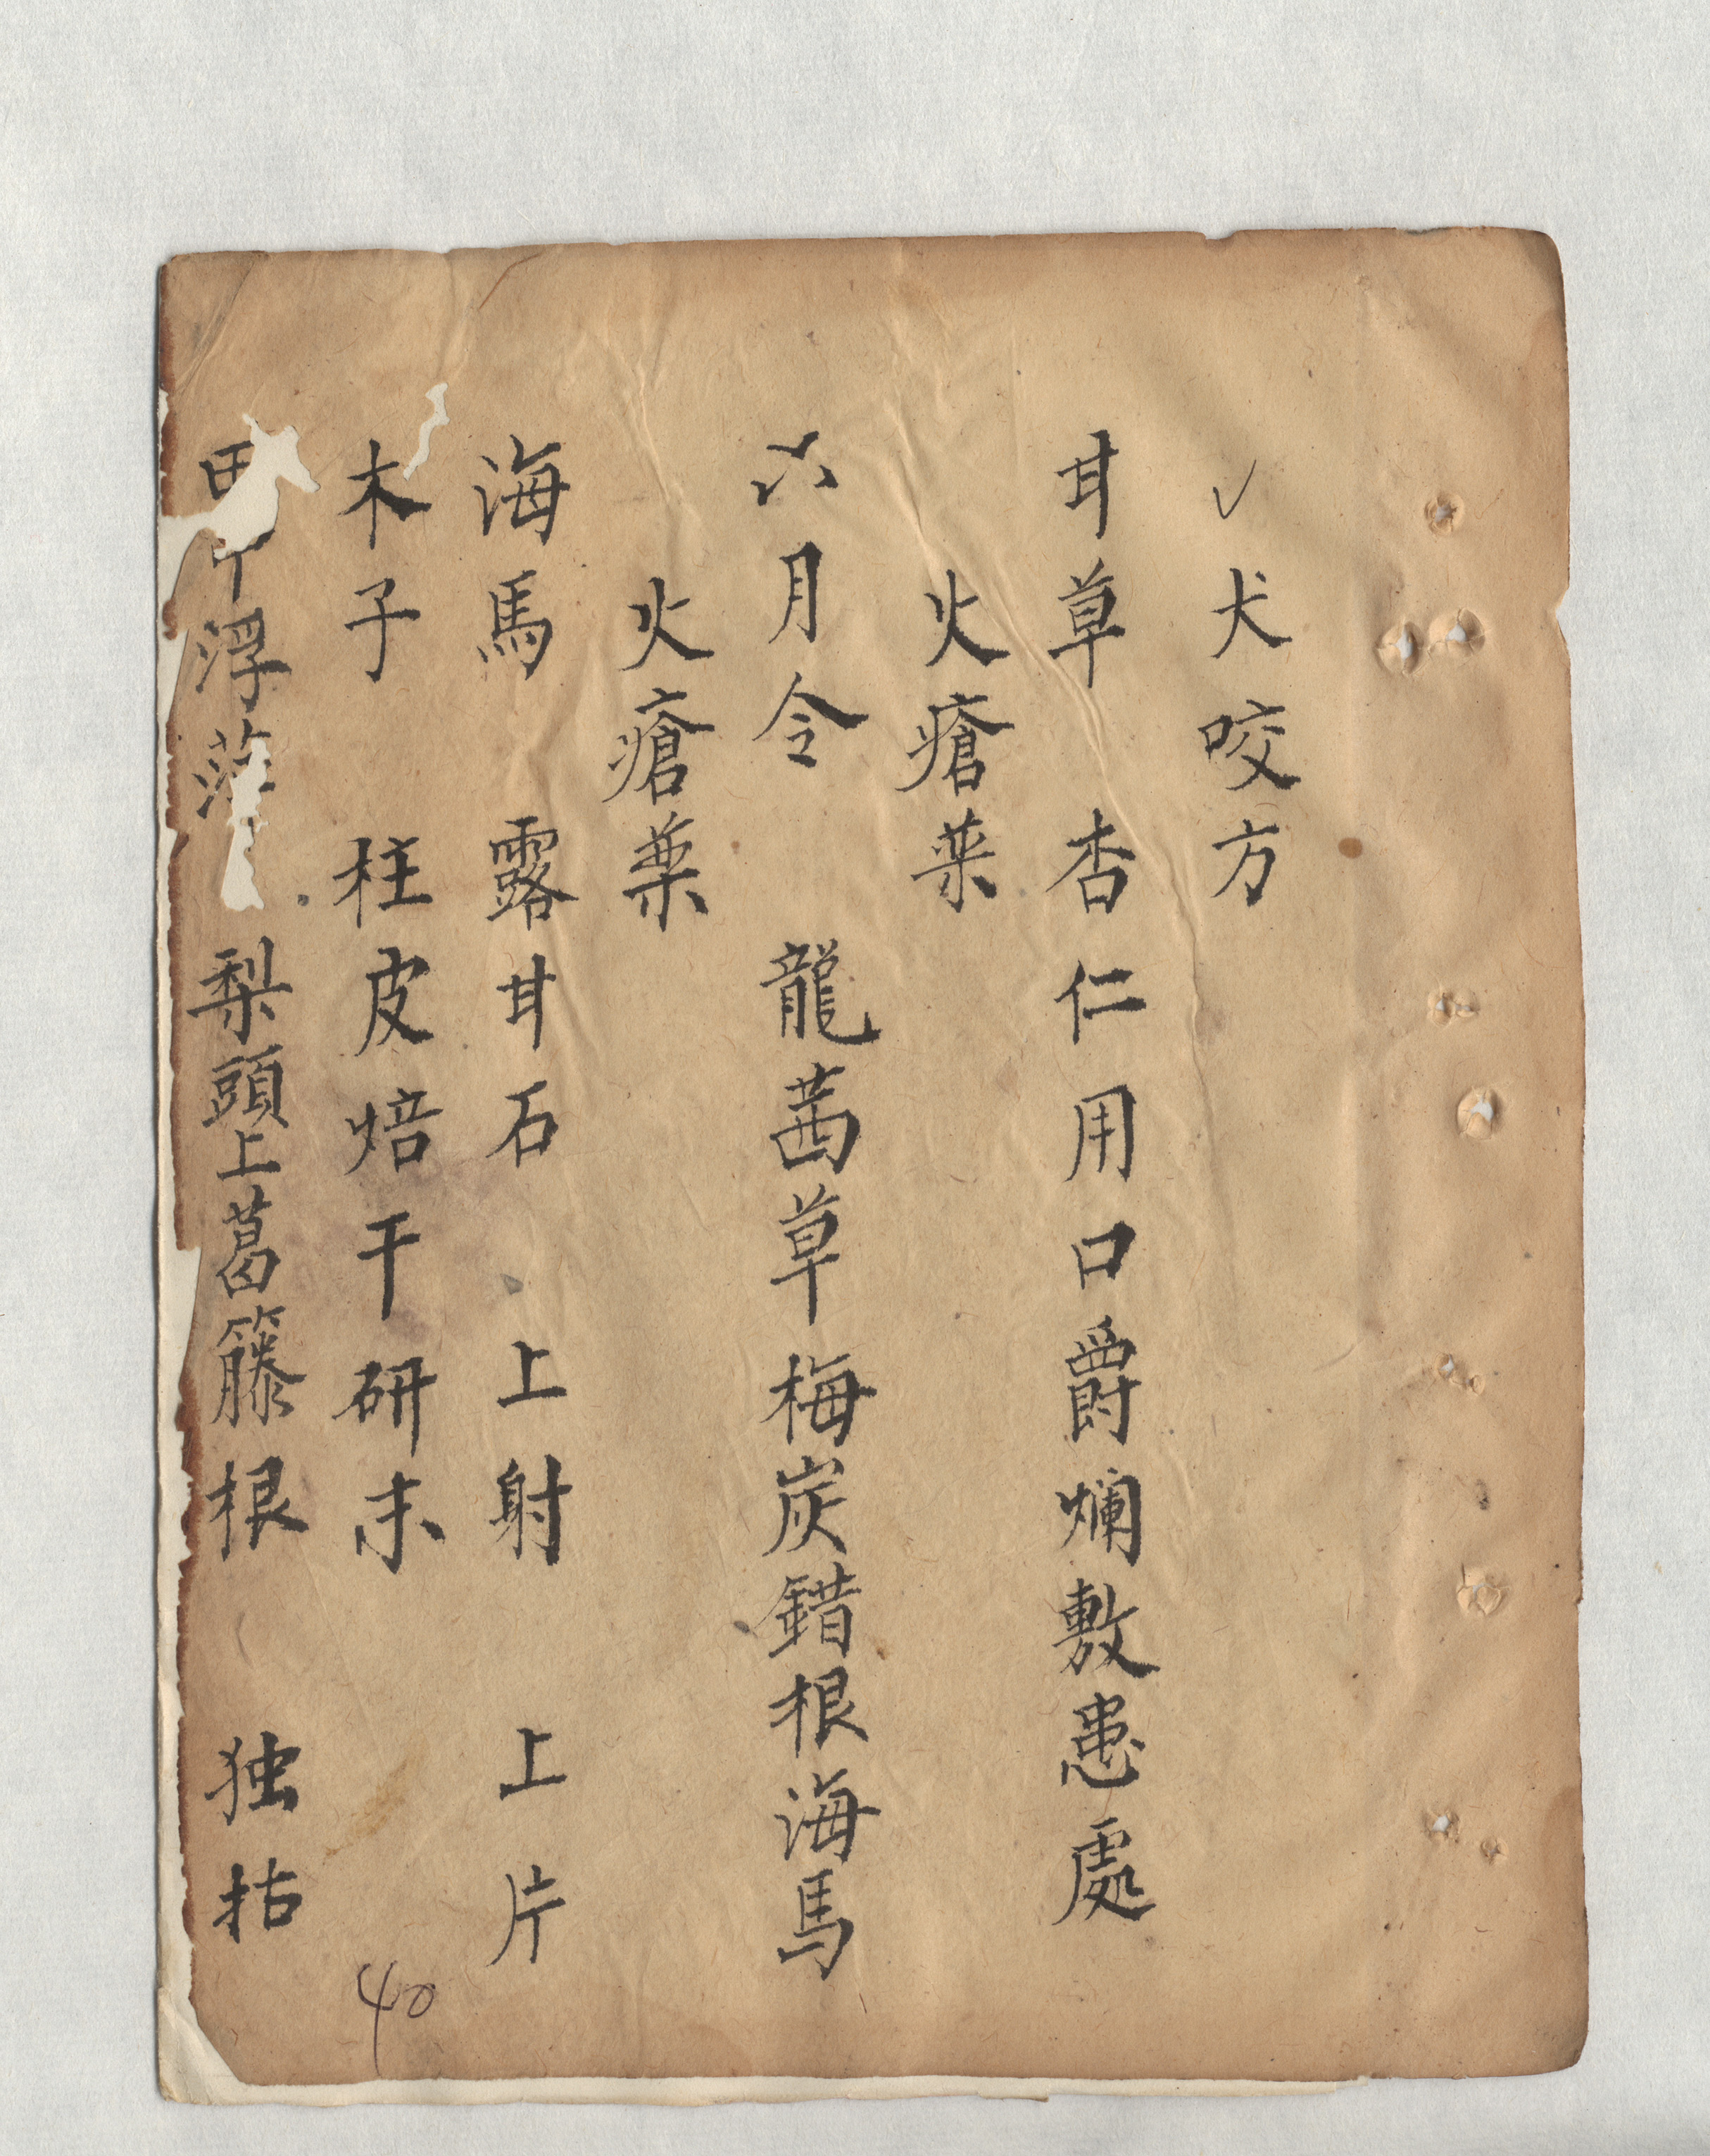 犬咬方
甘草 杏仁用口爵爛敷患處
火瘡菜
六月令 龍茜草梅炭錯根海馬
火瘡葉
海馬 露甘石 上射 上片
木子 柱皮焙干研末
浮 梨頭上葛籐根 独拈
40